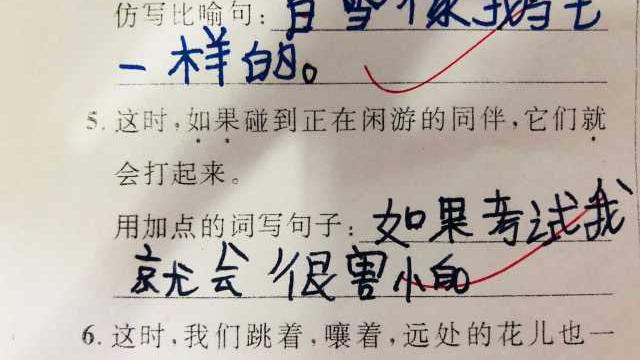 仿写比喻句：白雪像我
一样的。
5. 这时，如果碰到正在闲游的同伴，它们就
会打起来。
用加点的词写句子：如果考试我
就会很害怕
6. 这时，我们跳着，嚷着，远处的花儿也一